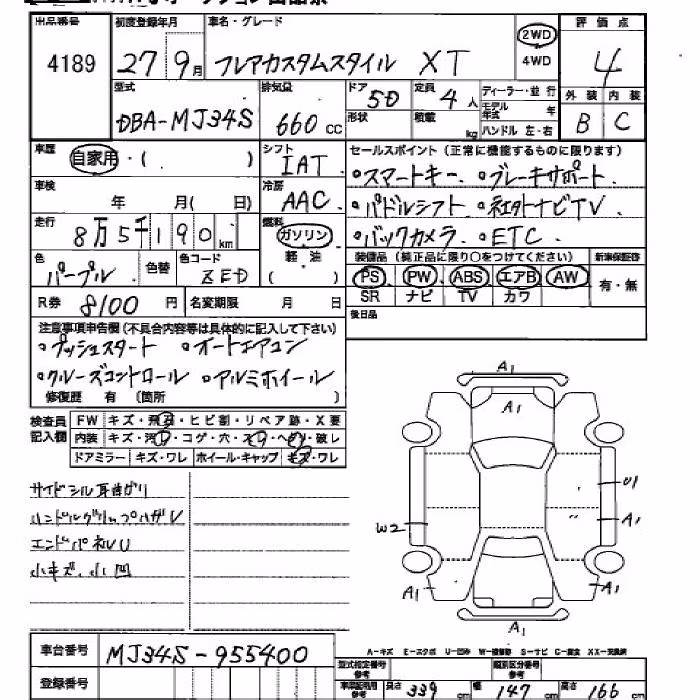 出品番号 初度登録年月 車名・グレード 評価点
4189 27 9月 フレアカスタムスタイル XT 2WD 4WD 4
型式 排気量 ドア 5D 定員 4人 ディーラー・並行 外装 内装
DBA-MJ34S 660 CC 形状 積載 kg モデル年式 年 B C
ハンドル 左・右
車歴 自家用・( ) シフト IAT セールスポイント(正常に機能するものに限ります)
車検 年 月( 日) 冷房 AAC 。スマートキー 。ブレーキサポート
走行 8万5千190km 燃料 ガソリン 。パドルシフト 。社外ナビTV
軽・油 。バックカメラ 。ETC
色 パープル 色替 色コード ZED ( ) 装備品(純正品に限り○をつけてください) 新車保証書
PS PW ABS エアB AW 有・無
R券 8100円 名変期限 月 日 SR ナビ TV カワ
注意事項申告欄(不具合内容等は具体的に記入して下さい) 後日品
。プッシュスタート 。オートエアコン
。クルーズコントロール 。アルミホイール
修復歴 有 (箇所 )
検査員記入欄 FW キズ・飛石・ヒビ割・リペア跡・X要
内装 キズ・汚レ・コゲ・穴・スレ・ヘタリ・破レ
ドアミラー キズ・ワレ ホイール・キャップ キズ・ワレ
A1
A1
サイドシル耳曲がり U1
ハンドルグリップハガレ A1
エンドパネルU W2
小キズ、小凹 A1 A1
A1
車台番号 MJ34S-955400 A-キズ E-エクボ U-凹み W-補修跡 S-サビ C-腐食 XX-交換済
型式指定番号参考 類別区分番号参考
登録番号 長さ 339 cm 幅 147 cm 高さ 166 cm